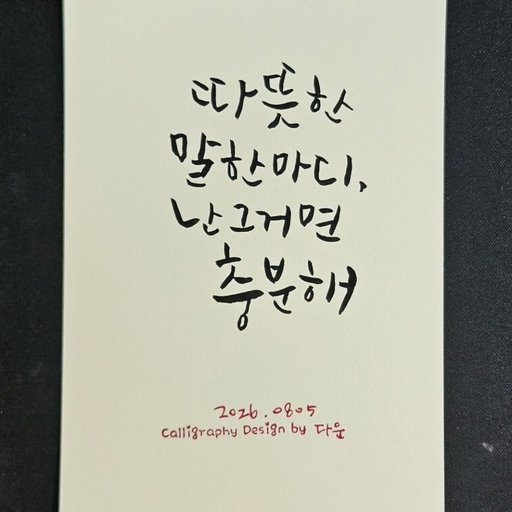 따뜻한
말한마디,
난그거면
충분해
2026.0805
Calligraphy Design by 다운